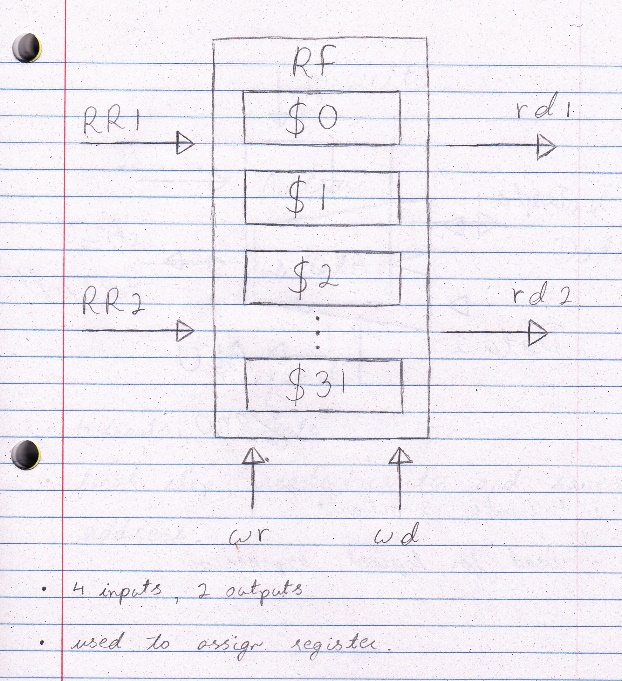 RF
$0
RR1
rd1
$1
$2
RR2
rd2
$31
wr wd
• 4 inputs, 2 outputs
• used to assign register.